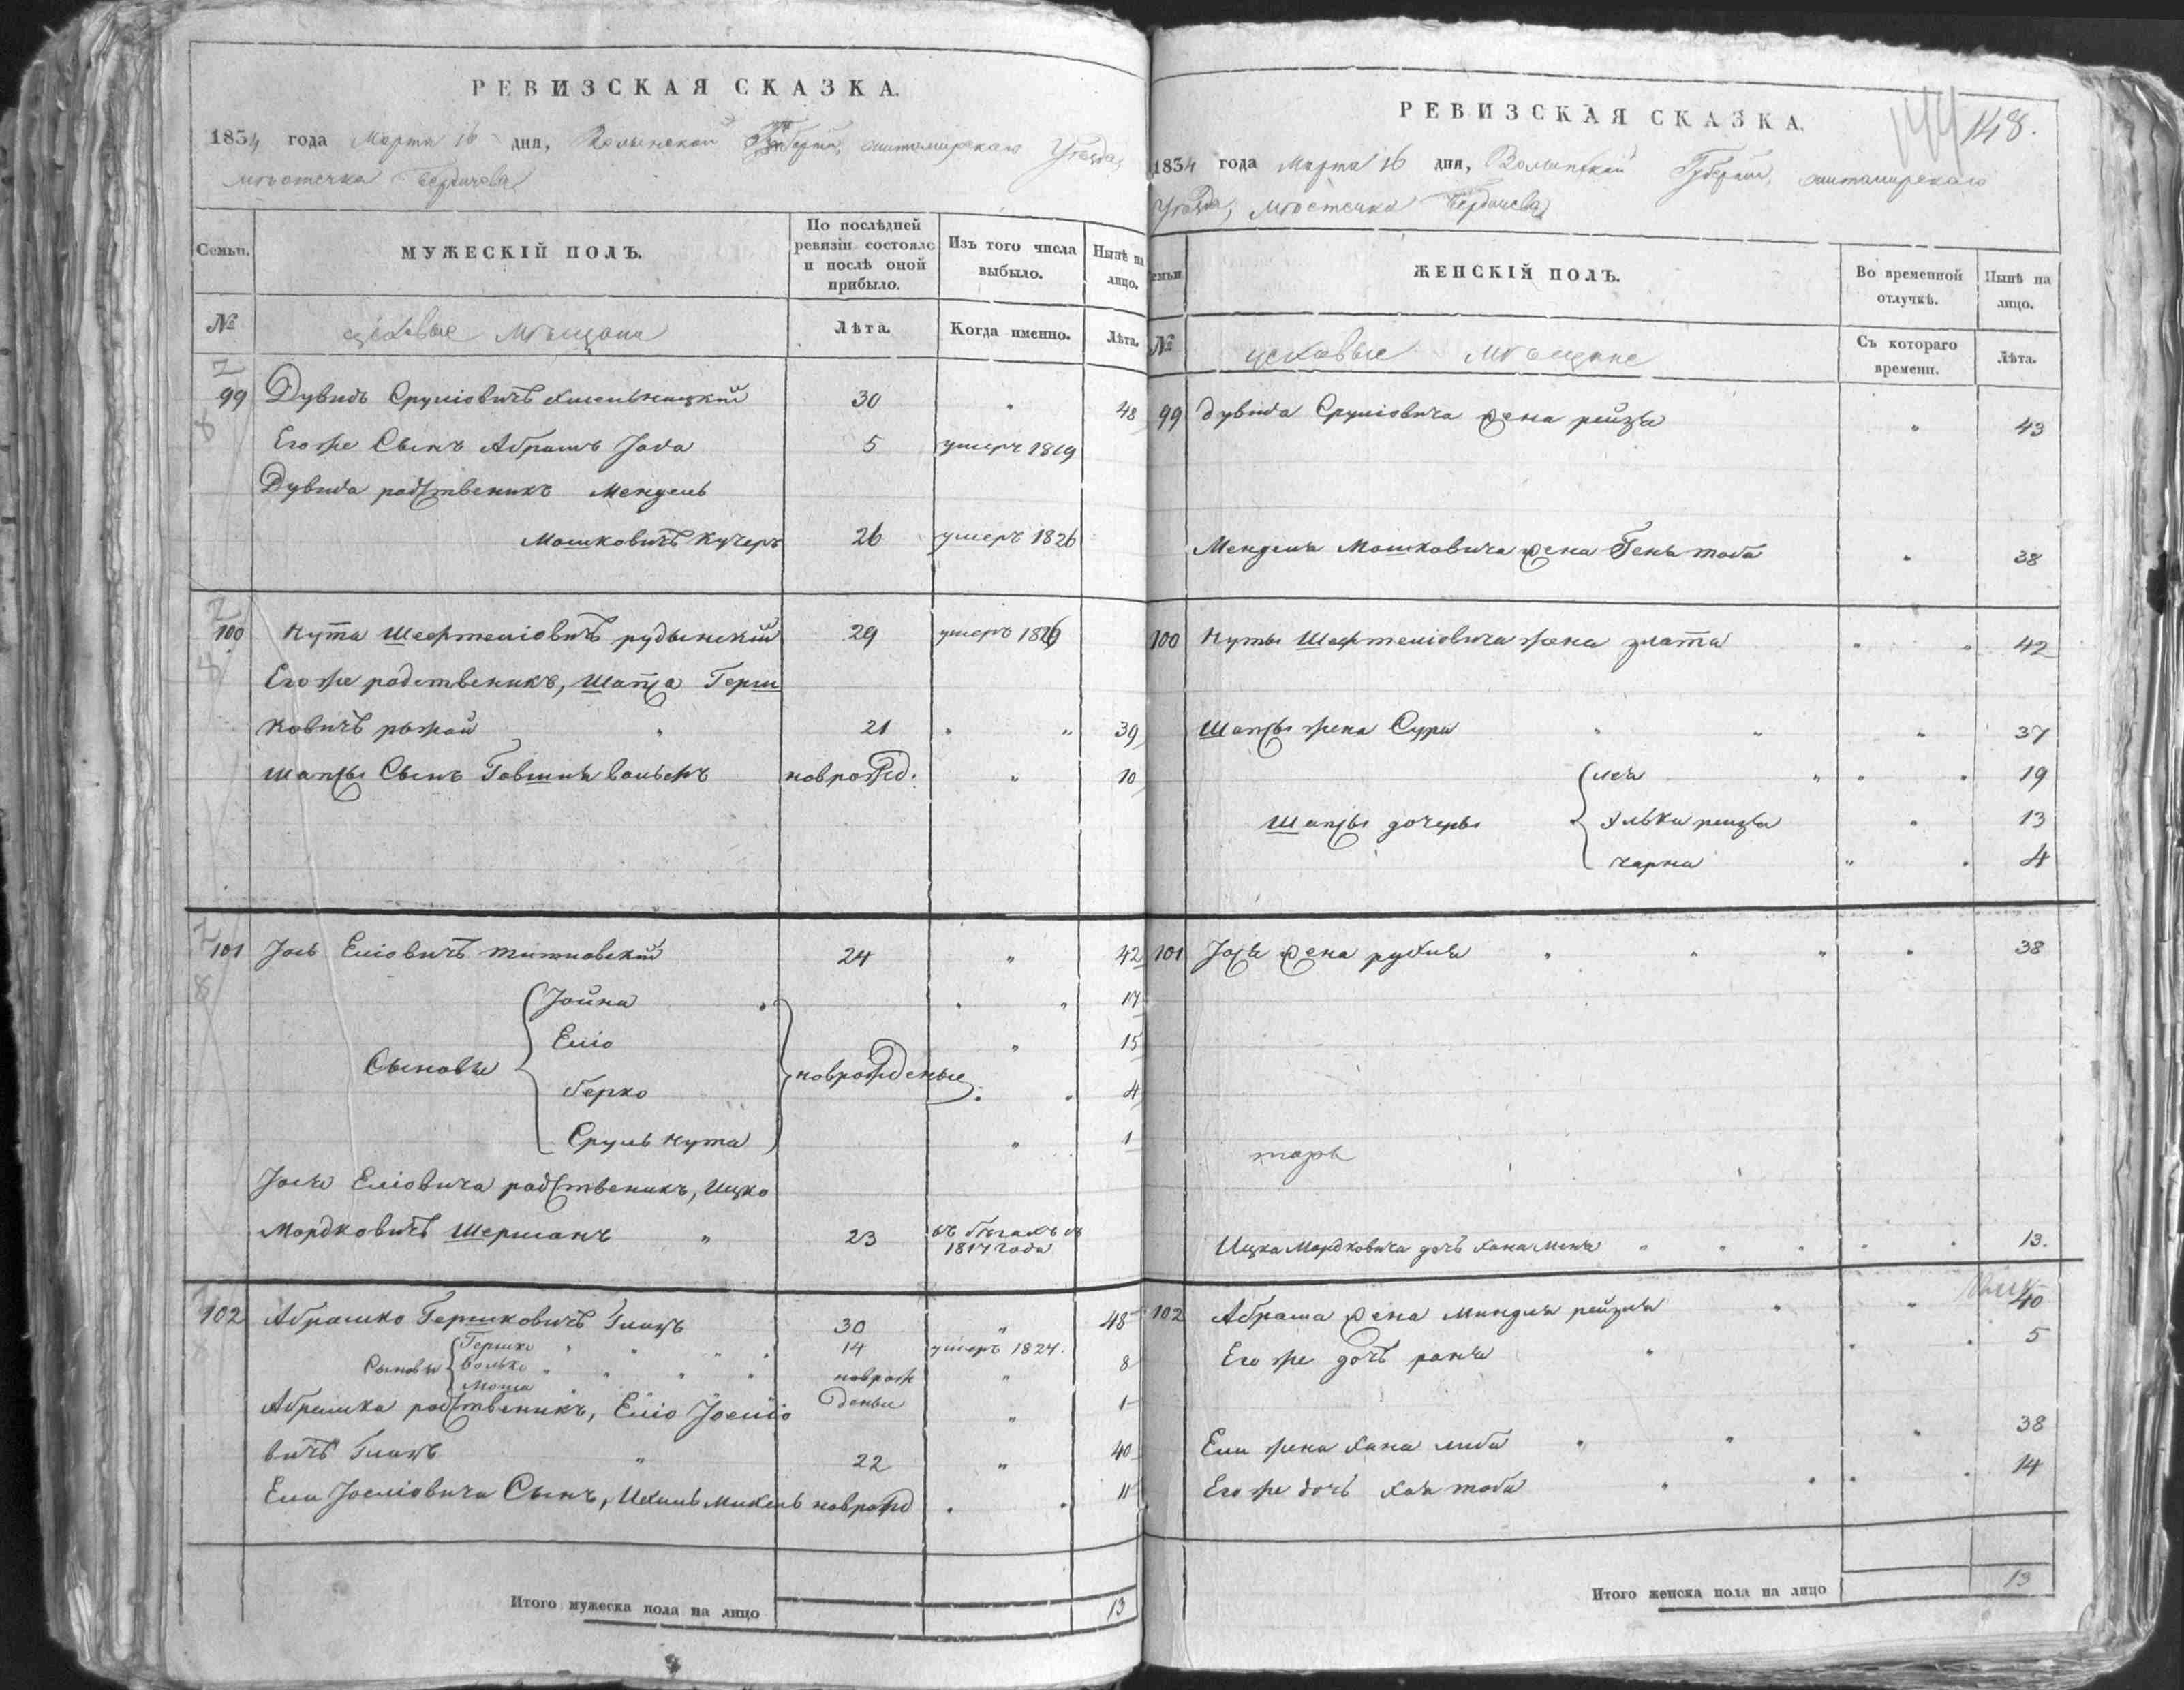 РЕВИЗСКАЯ СКАЗКА.
1834 года Марта 16 дня, Волынской Губерніи, житомирскаго Уезда,
мѣстечка Бердичева
Семьи. МУЖЕСКІЙ ПОЛЪ. По послѣдней ревизіи состояло и послѣ оной прибыло. Изъ того числа выбыло. Нынѣ на лицо.
№ цеховые мѣщане Лѣта. Когда именно. Лѣта.
99 Дувидъ Сруліовичъ хмельницкій 30 " 48
Его же Сынъ Абрамъ 5 умеръ 1819
Дувида родственикъ Мендель
Мошковичъ Кучеръ 26 умеръ 1826
100 Нута Шефтеліовичъ рудынскій 29 умеръ 1826
Его же родственикъ, Шапса Герш
ковичъ рыжой " 21 " " 39
Шапсы Сынъ Говшия Вольфъ новрожд. " 10
101 Іось Еліовичъ титновскій 24 " 42
Сыновья
Іойна " " 17
Еліо " 15
берко " " 4
Сруль нута " 1
новрожденые
Іося Еліовича родственикъ, Ицко
Мордковичъ Шерманъ " 23 въ бѣгахъ съ
1817 года
102 Абрамко Гершковичъ Глазъ 30 " 48
Сыновья
Гершко 14 умеръ 1824.
Волько новрож 8
Моша деные " 1
Абрамка родственикъ, Еліо Іосьліо
вичъ Глазъ " 22 " 40
Ели Іосліовича Сынъ, Ихиль Михель новрожд " " 11
Итого мужеска пола на лицо 13
148.
РЕВИЗСКАЯ СКАЗКА.
1834 года Марта 16 дня, Волынской Губерніи, житомирскаго
Уезда, мѣстечка Бердичева
Семьи. ЖЕНСКІЙ ПОЛЪ. Во временной отлучкѣ. Нынѣ на лицо.
№ цеховые мѣщане Съ котораго времени. Лѣта.
99 Дувида Сруліовича жена рейза " 43
Менделя Мошковича жена Геня тоба " 38
100 Нуты Шефтеліовича жена злата " " 42
Шапсы жена Сура " " " 37
Шапсы дочеры
лея " " " 19
Элька рейза " 13
чарна " " 4
101 Іося жена рухля " " " " 38
Ицка Мордковича дочь хана Меня " " " " " 13.
102 Абрама жена Миндля рейзля " " 40
Его же дочь раня " " " 5
Ели жена хана либа " " " 38
Его же дочь хая тоба " " " " 14
Итого женска пола на лицо 13